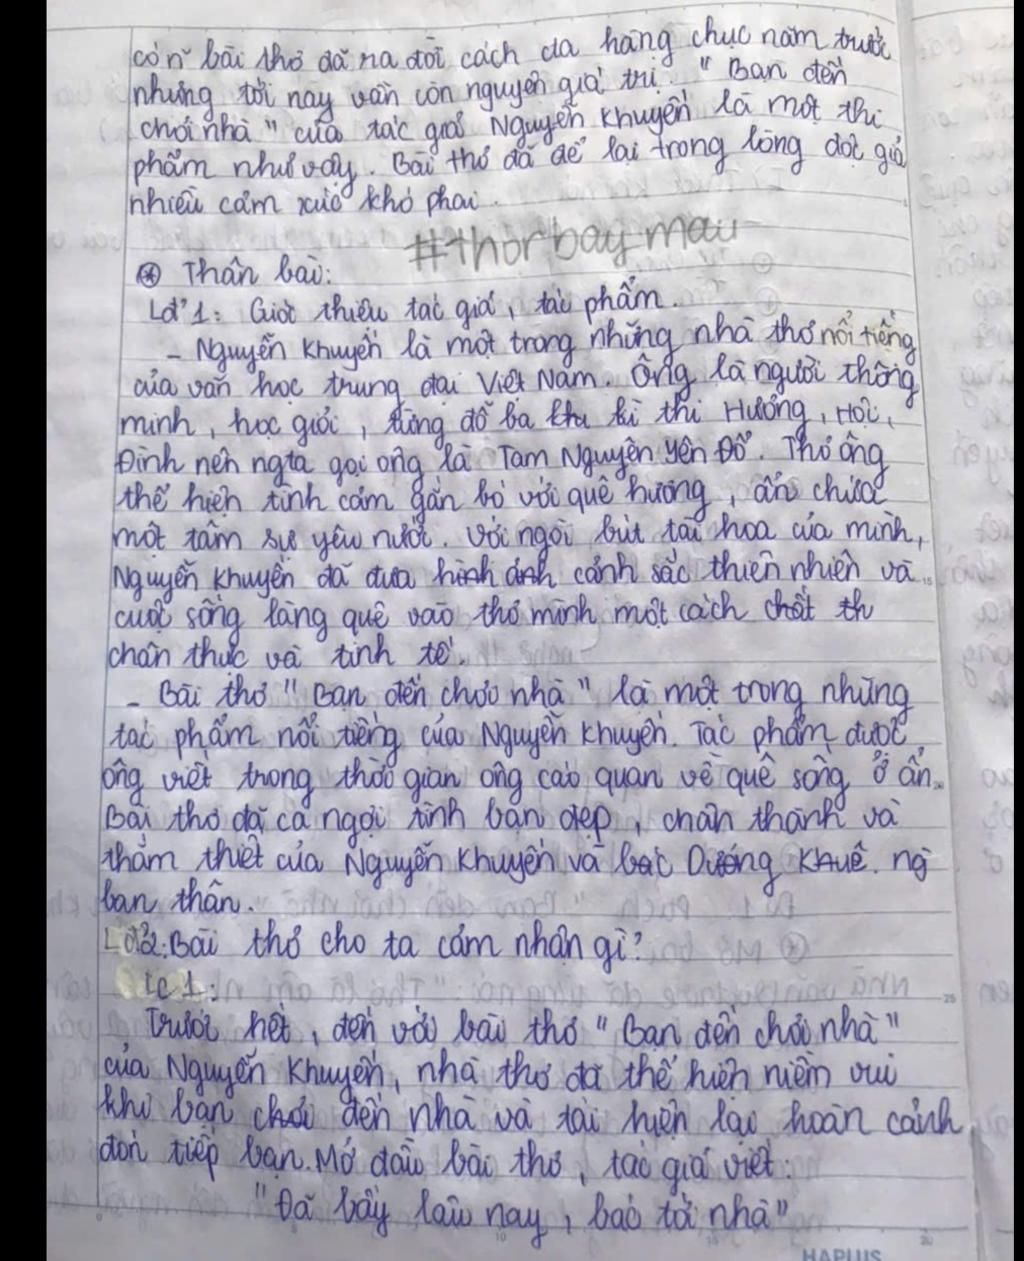 còn bài thơ đã ra đời cách đa hàng chục năm trước
nhưng tới nay vẫn còn nguyên giá trị. "Bạn đến
chơi nhà" của tác giả Nguyễn Khuyến là một thi
phẩm như vậy. Bài thơ đã để lại trong lòng đọc giả
nhiều cảm xúc khó phai.
#thorbaymau
* Thân bài:
Lđ1: Giới thiệu tác giả, tác phẩm.
- Nguyễn Khuyến là một trong những nhà thơ nổi tiếng
của văn học trung đại Việt Nam. Ông là người thông
minh, học giỏi, từng đỗ ba khu kì thi Hương, Hội,
Đình nên ngta gọi ông là Tam Nguyên Yên Đổ. Thơ ông
thể hiện tình cảm gắn bó với quê hương, ẩn chứa
một tâm sự yêu nước. Với ngòi bút tài hoa của mình,
Nguyễn Khuyến đã đưa hình ảnh cảnh sắc thiên nhiên và
cuộc sống làng quê vào thơ mình một cách chất th
chân thực và tinh tế.
- Bài thơ "Bạn đến chơi nhà" là một trong những
tác phẩm nổi tiếng của Nguyễn Khuyến. Tác phẩm được
ông viết trong thời gian ông cáo quan về quê sống ở ẩn.
Bài thơ đã ca ngợi tình bạn đẹp, chân thành và
thắm thiết của Nguyễn Khuyến và Dương Khuê. ng
bạn thân.
Lđ2: Bài thơ cho ta cảm nhận gì?
Lc1:
Trước hết, đến với bài thơ "Bạn đến chơi nhà"
của Nguyễn Khuyến, nhà thơ đã thể hiện niềm vui
khi bạn chơi đến nhà và tái hiện lại hoàn cảnh
đón tiếp bạn. Mở đầu bài thơ, tác giả viết:
"Đã bấy lâu nay, bác tới nhà"
HAPLUS